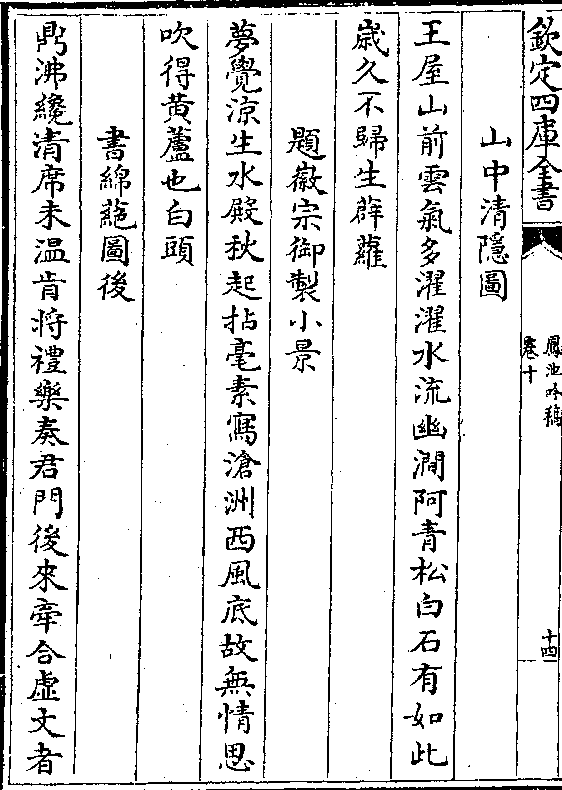 欽定四庫全書
鳳池吟稿
卷十
十四
山中清隱圖
王屋山前雲氣多濯濯水流幽澗阿青松白石有如此
歲久不歸生薜蘿
題徽宗御製小景
夢覺涼生水殿秋起拈毫素寫滄洲西風底故無情思
吹得黃蘆也白頭
書綿蕝圖後
鼎沸纔清席未温肯將禮樂奏君門後來牽合虛文者